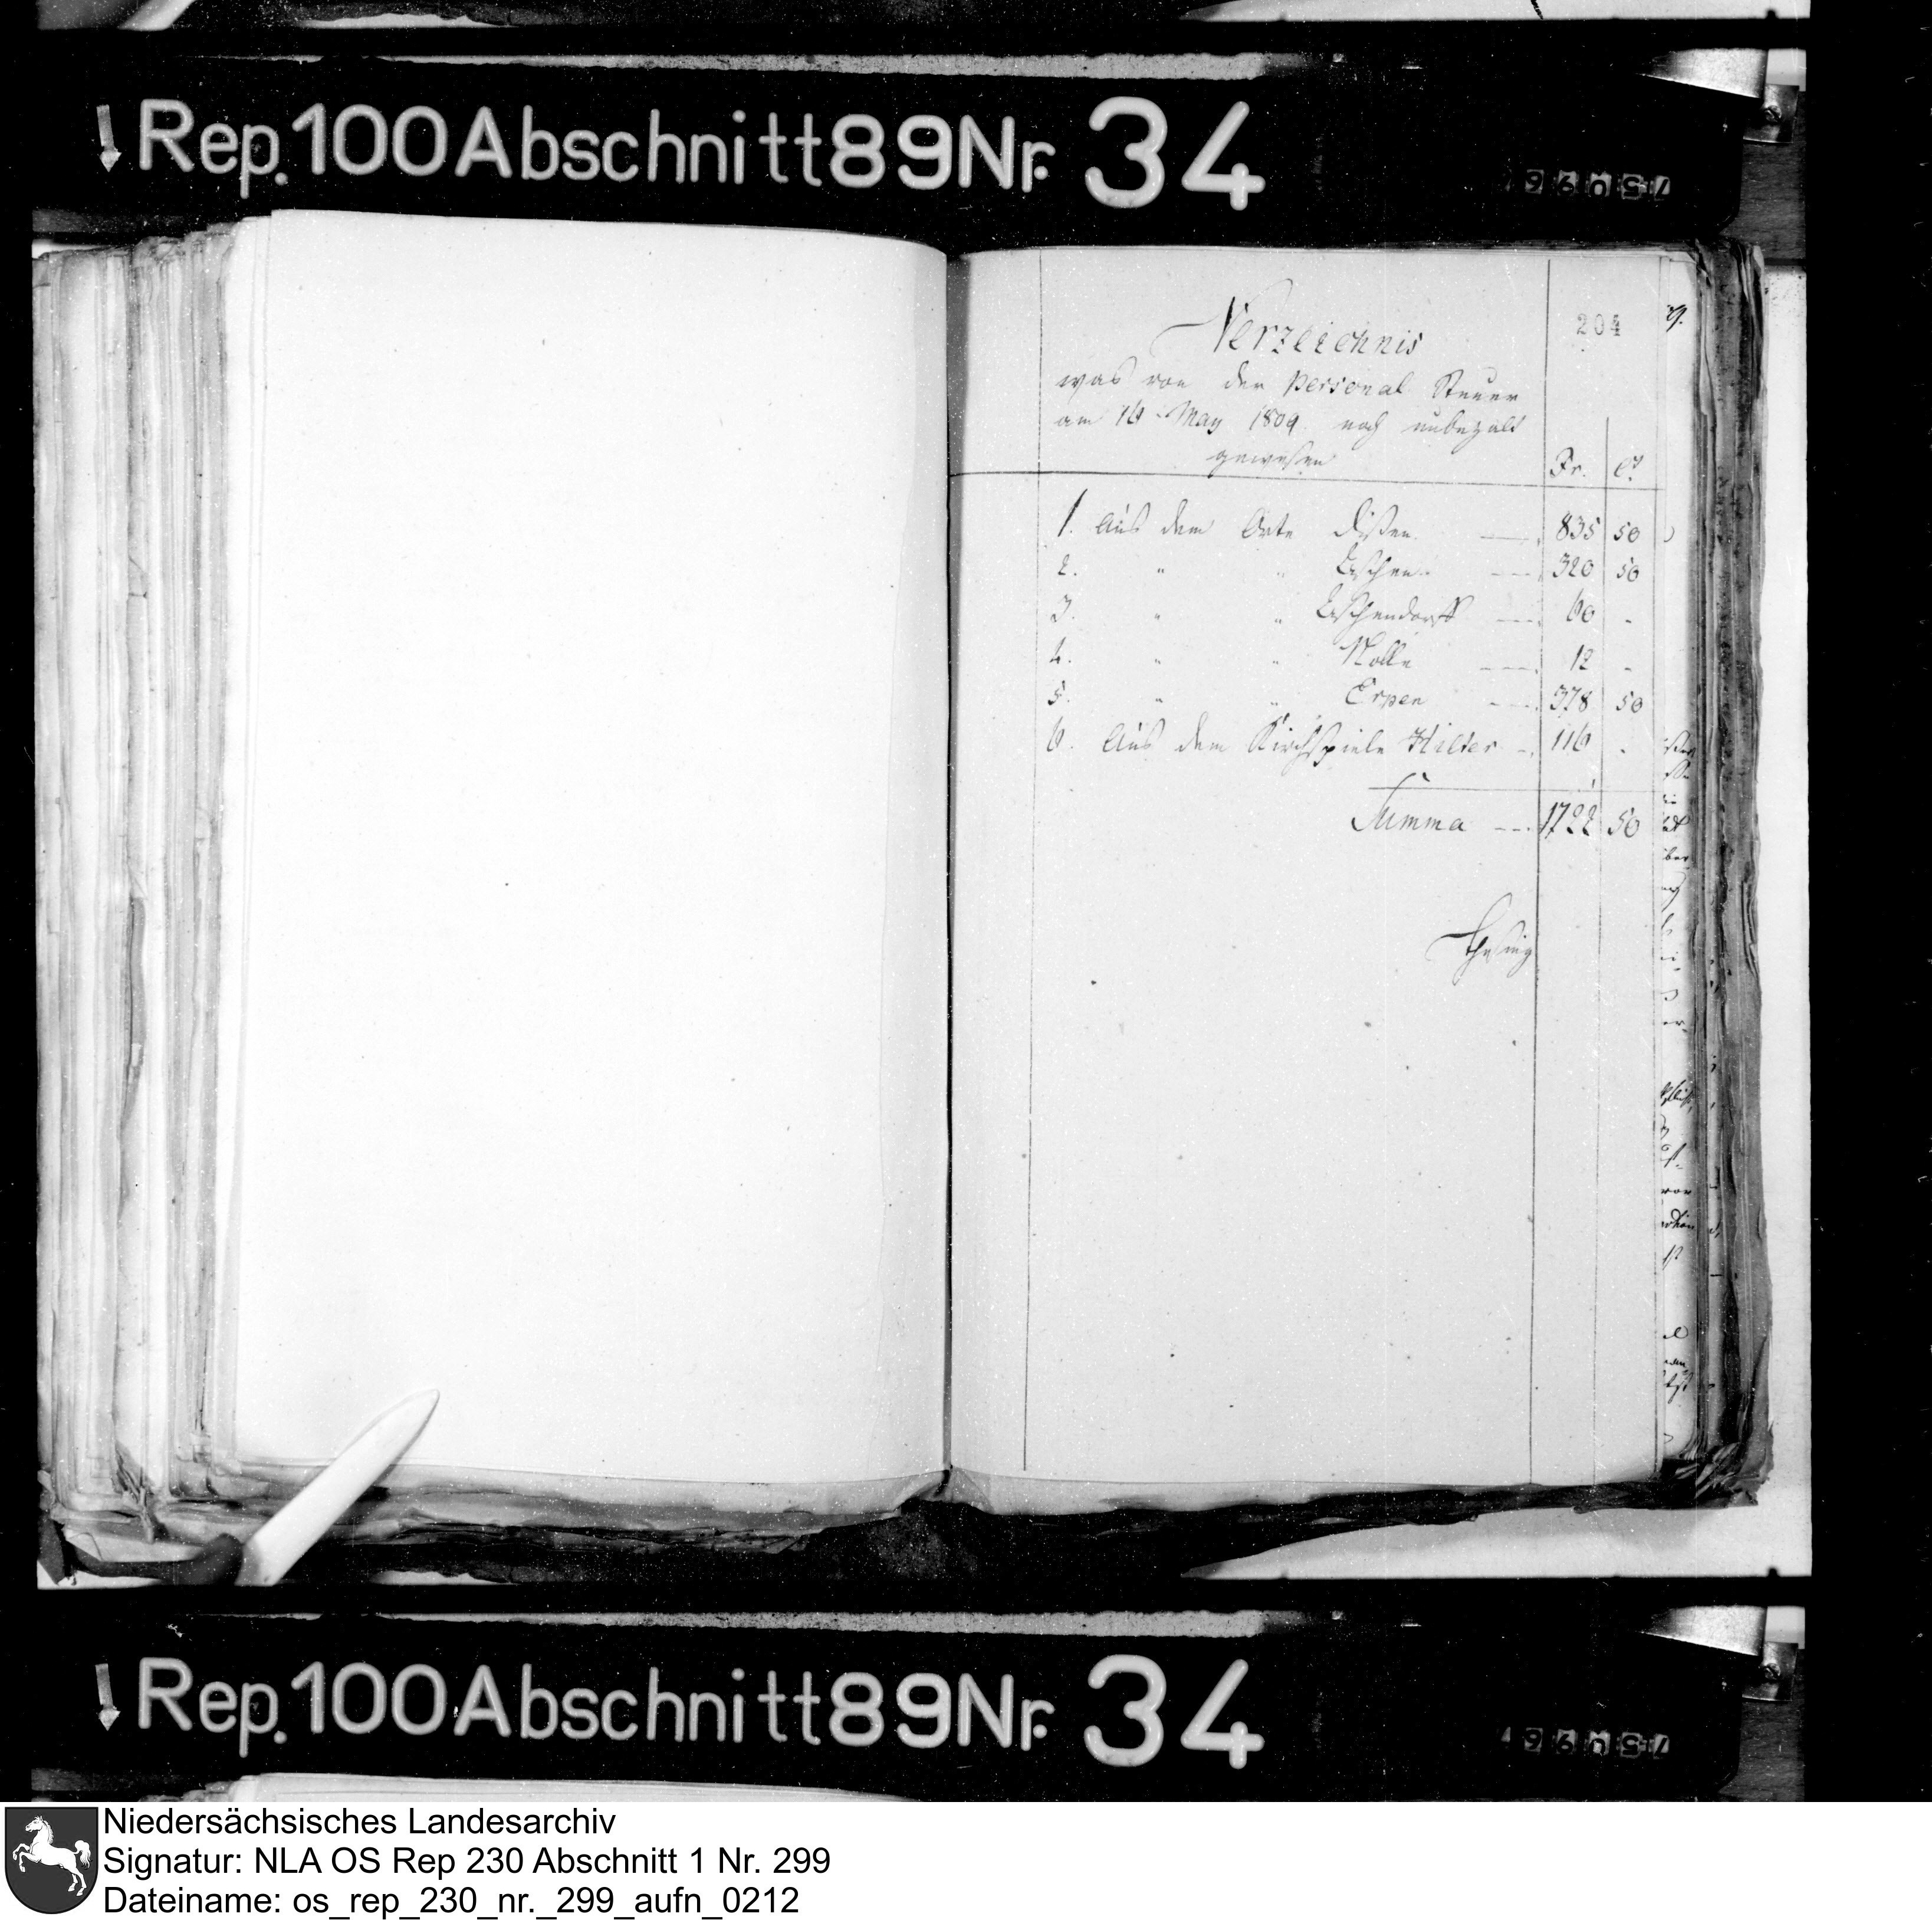 Rep. 100 Abschnitt 89 Nr. 34
204
Verzeichnis
was von der Personal Steuer
am 16 May 1809. noch unbezalt
gewesen
Fr. Ct
1. Aus dem Orte Dißen — 835 50
2. " " Aschen — 320 50
3. " " Aschendorff — 60 -
4. " " Nolle — 12 -
5. " " Erpen — 378 50
6. Aus dem Kirchspiele Hilter - 116 -
Summa — 1722 50
Rep. 100 Abschnitt 89 Nr. 34
Niedersächsisches Landesarchiv
Signatur: NLA OS Rep 230 Abschnitt 1 Nr. 299
Dateiname: os_rep_230_nr._299_aufn_0212